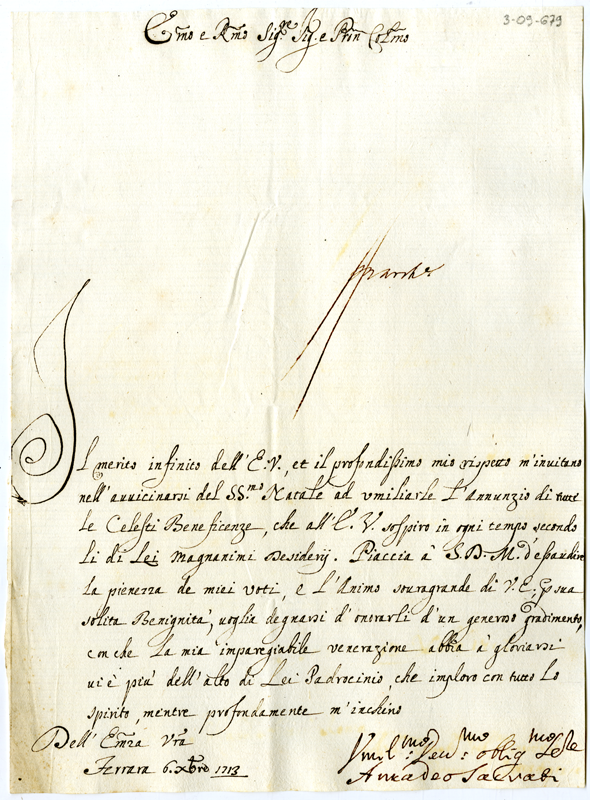 3-09-679
Emo e Rmo Sigre Sig. e Prin Colmo
Il merito infinito dell'E.V., et il profondissimo mio rispetto m'inuitano
nell'auuicinarsi del SS.mo Natale ad vmiliarle l'Annunzio di tutte
le Celesti Beneficenze, che all'E.V. sospiro in ogni tempo secondo
li di Lei magnanimi Desiderij. Piaccia à S.D.M. d'essaudire
la pienezza de miei voti, e l'Animo souragrande di V.E., p sua
solita Benignità, uoglia degnarsi d'onorarli d'un generoso gradimento,
con che la mia impareggiabile venerazione abbia à gloriarsi
uiè più dell'alto di Lei Padrocinio, che imploro con tutto lo
spirito, mentre profondamente m'inchino
Dell'Emza Vra
Ferrara 6. Xbre 1713
Vmil:mo Deu:mo obblig:mo
Amadeo Saluati